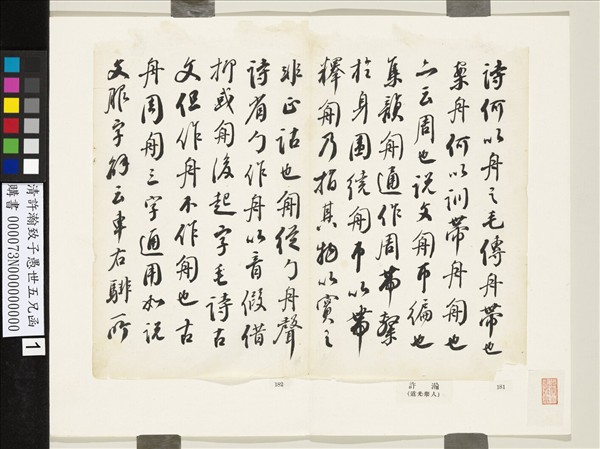 詩何以舟之毛傳舟帶也
案舟何以訓帶舟𠣘也
云周也説文𠣘帀徧也
集韻𠣘通作周帶繫
於身圍繞𠣘帀以帶
釋𠣘乃指其物以實之
非正詁也𠣘從勹舟聲
詩省勹作舟以音假借
抑或𠣘後起字毛詩古
文但作舟不作𠣘也古
舟周𠣘三字通用如説
文服字解云車右騑所
181
許瀚
(道光舉人)
182
清許瀚致子愚世五兄函
購書 000073N000000000
1